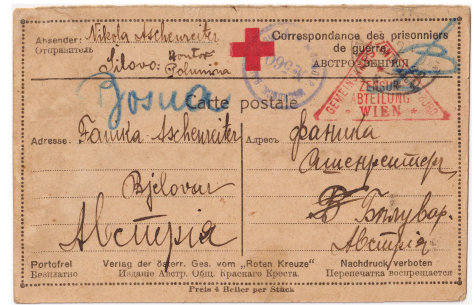 Absender: Nikola Aschenreiter
Отправитель
Silovo:
Correspondance des prisonniers
de guerre.
АВСТРО-ВЕНГРІЯ
ZENSUR
ABTEILUNG
WIEN
Bosna
Carte postale
Adresse: Fanika Aschenreiter
Bjelovar
Австрія
Адресъ: фаника
Ашенреитер
Бѣлувар.
Австрія
Portofrei
Безплатно
Verlag der österr. Ges. vom „Roten Kreuze“
Изданіе Австр. Общ. Краснаго Креста.
Nachdruck verboten
Перепечатка воспрещается
Preis 4 Heller per Stück